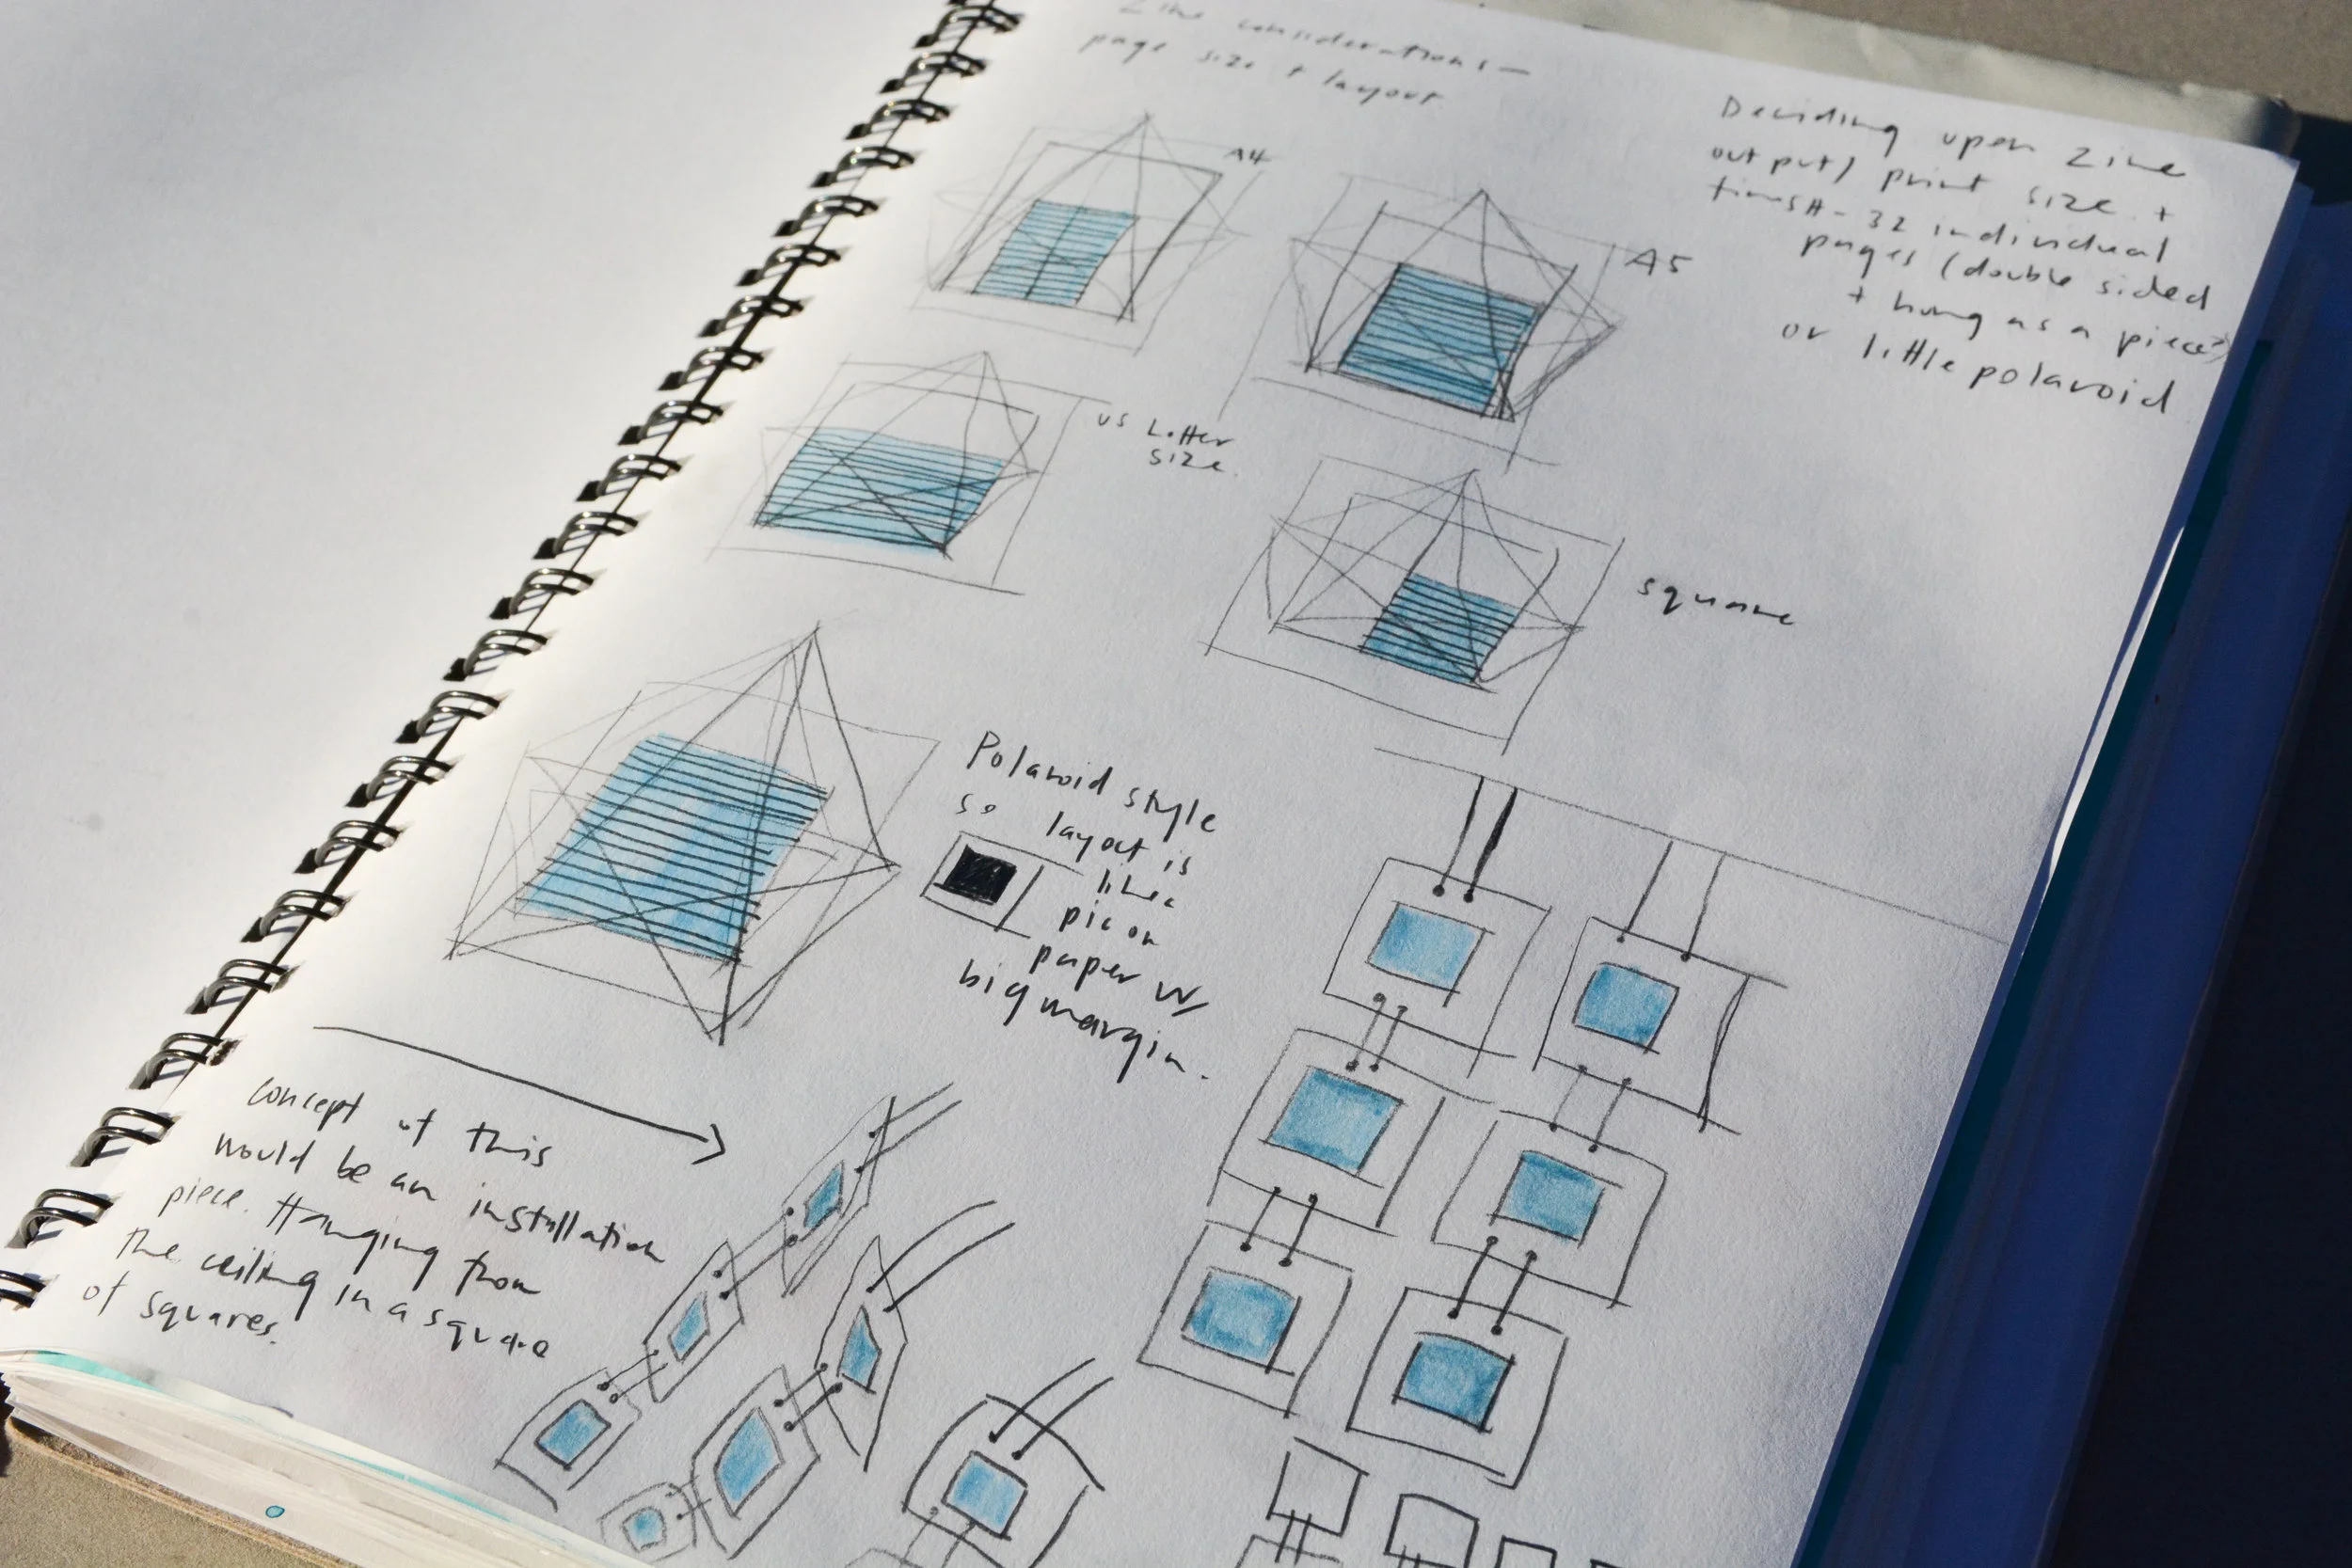 Zine considerations —
page size + layout
A4
A5
US Letter
size.
square
Deciding upon Zine
output / print size +
finish - 32 individual
pages (double sided
+ hung as a piece?)
or little polaroid
Polaroid style
so layout is
like
pic on
paper w/
big margin.
concept of this
would be an installation
piece. Hanging from
the ceiling in a square
of squares.